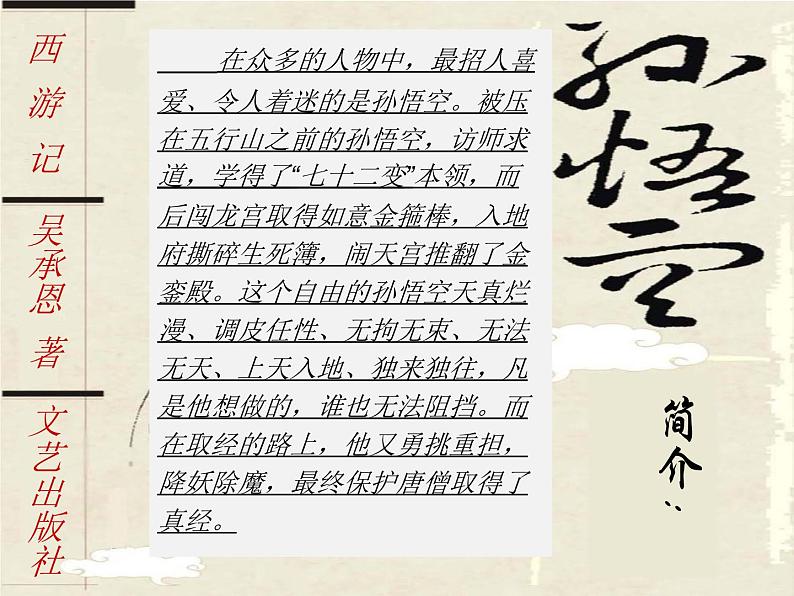 西游记
吴承恩 著
文艺出版社
在众多的人物中，最招人喜
爱、令人着迷的是孙悟空。被压
在五行山之前的孙悟空，访师求
道，学得了“七十二变”本领，而
后闯龙宫取得如意金箍棒，入地
府撕碎生死簿，闹天宫推翻了金
銮殿。这个自由的孙悟空天真烂
漫、调皮任性、无拘无束、无法
无天、上天入地、独来独往，凡
是他想做的，谁也无法阻挡。而
在取经的路上，他又勇挑重担，
降妖除魔，最终保护唐僧取得了
真经。
孙悟空
简介：